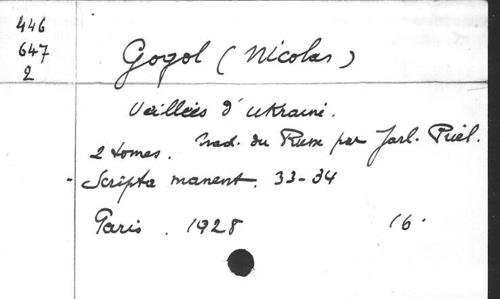 446
647
2
Gogol (Nicolas)
Veillées d'Ukraine.
2 tomes. Trad. du Russe par Jarl. Priel.
- Scripta manent. 33-34
Paris . 1928 16.